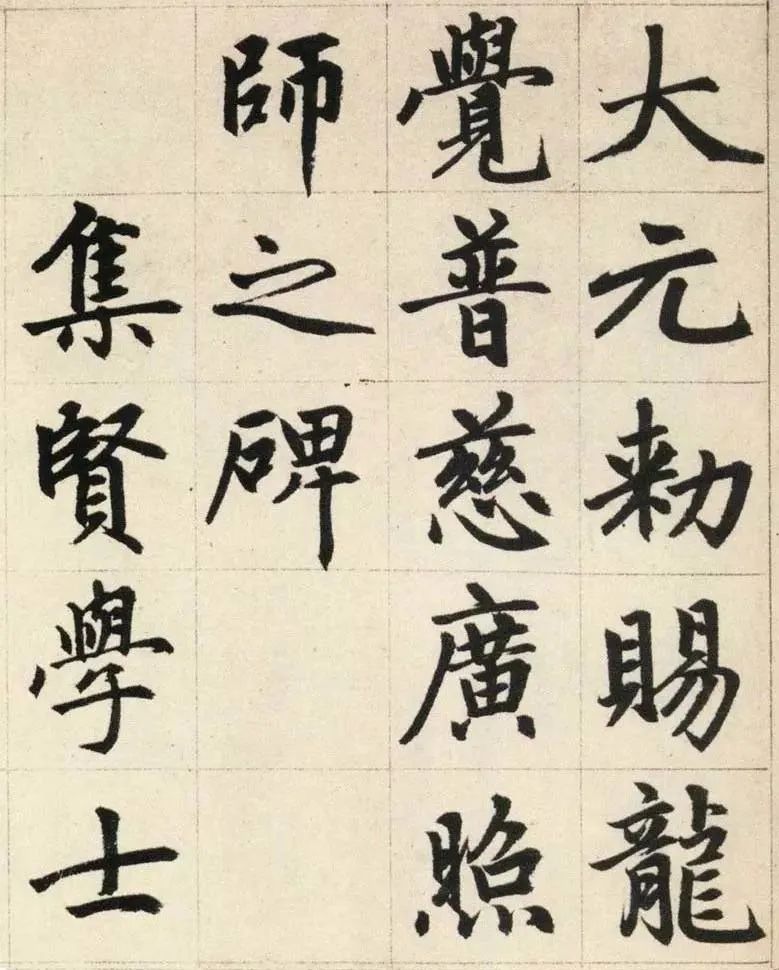 大元勑賜龍
覺普慈廣照
師之碑
集賢學士